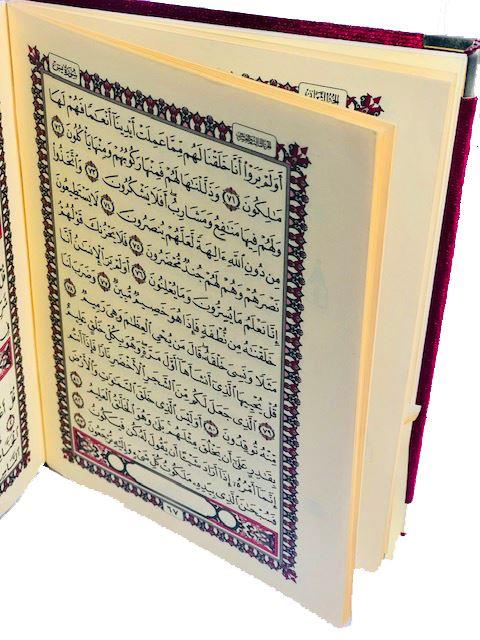 الجزء الثالث والعشرون
سورة يس
أَوَلَمْ يَرَوْا۟ أَنَّا خَلَقْنَا لَهُم مِّمَّا عَمِلَتْ أَيْدِينَآ أَنْعَـٰمًا فَهُمْ لَهَا
مَـٰلِكُونَ ٧١ وَذَلَّلْنَـٰهَا لَهُمْ فَمِنْهَا رَكُوبُهُمْ وَمِنْهَا يَأْكُلُونَ ٧٢
وَلَهُمْ فِيهَا مَنَـٰفِعُ وَمَشَارِبُ أَفَلَا يَشْكُرُونَ ٧٣ وَٱتَّخَذُوا۟
مِن دُونِ ٱللَّهِ ءَالِهَةً لَّعَلَّهُمْ يُنصَرُونَ ٧٤ لَا يَسْتَطِيعُونَ
نَصْرَهُمْ وَهُمْ لَهُمْ جُندٌ مُّحْضَرُونَ ٧٥ فَلَا يَحْزُنكَ قَوْلُهُمْ
إِنَّا نَعْلَمُ مَا يُسِرُّونَ وَمَا يُعْلِنُونَ ٧٦ أَوَلَمْ يَرَ ٱلْإِنسَـٰنُ أَنَّا
خَلَقْنَـٰهُ مِن نُّطْفَةٍ فَإِذَا هُوَ خَصِيمٌ مُّبِينٌ ٧٧ وَضَرَبَ لَنَا
مَثَلًا وَنَسِىَ خَلْقَهُۥ قَالَ مَن يُحْىِ ٱلْعِظَـٰمَ وَهِىَ رَمِيمٌ ٧٨
قُلْ يُحْيِيهَا ٱلَّذِىٓ أَنشَأَهَآ أَوَّلَ مَرَّةٍ وَهُوَ بِكُلِّ خَلْقٍ عَلِيمٌ ٧٩
ٱلَّذِى جَعَلَ لَكُم مِّنَ ٱلشَّجَرِ ٱلْأَخْضَرِ نَارًا فَإِذَآ أَنتُم
مِّنْهُ تُوقِدُونَ ٨٠ أَوَلَيْسَ ٱلَّذِى خَلَقَ ٱلسَّمَـٰوَٰتِ وَٱلْأَرْضَ
بِقَـٰدِرٍ عَلَىٰٓ أَن يَخْلُقَ مِثْلَهُم بَلَىٰ وَهُوَ ٱلْخَلَّـٰقُ ٱلْعَلِيمُ ٨١
إِنَّمَآ أَمْرُهُۥٓ إِذَآ أَرَادَ شَيْـًٔا أَن يَقُولَ لَهُۥ كُن فَيَكُونُ ٨٢
فَسُبْحَـٰنَ ٱلَّذِى بِيَدِهِۦ مَلَكُوتُ كُلِّ شَىْءٍ وَإِلَيْهِ تُرْجَعُونَ
٦٧